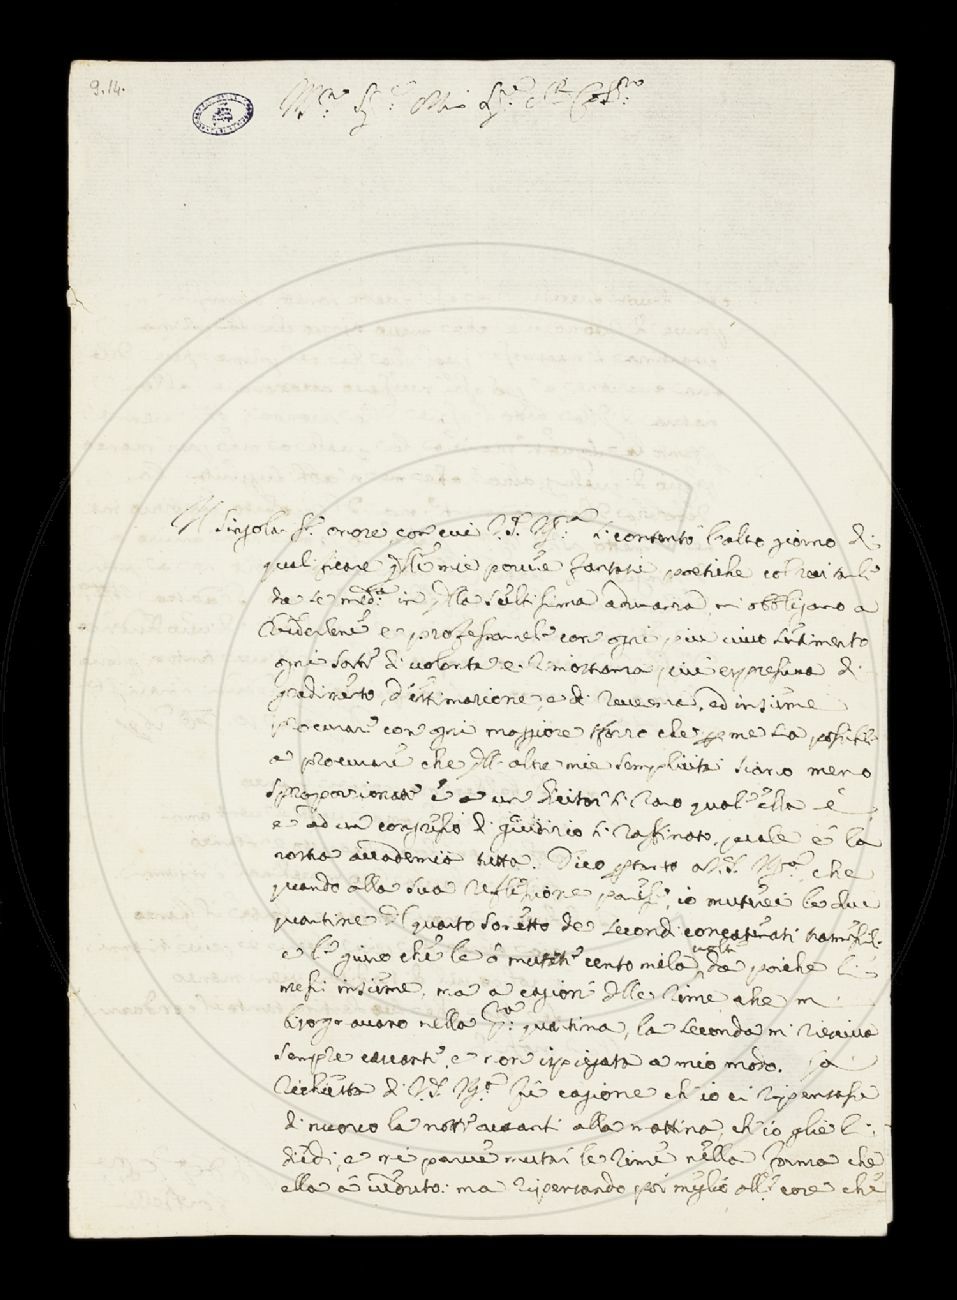 9.14.
Il singolar onore con cui V.S. Ill.ma si contentò l'altro giorno di
qualificare quelle mie povere fantasie poetiche col recitarle
da se med.ma in quella dottissima adunanza, mi obbligano a
e professarnele con ogni più vivo sentimento
ogni sorte di volontà e rimostranza più espressiva di
gradimento, d'estimazione, e di reverenza, ed insieme
procurare con ogni maggiore sforzo che per me sia possibile
a procurare che quelle altre mie semplicità siano meno
sproporzionate e a un sì raro quale ella è
e ad un congresso di giudizio sì raffinato, quale è la
nostra accademia tutta. Dico pertanto a V.S. Ill.ma che
quando alla sua reflessione paresse, io muterei le due
quartine del quarto sonetto de secondi concatenati
e le giuro che le ò mutate cento mila voglie, da poiche li
messi insieme, ma a cagione delle rime che mi
bisognavano nella p.ma quartina, la seconda mi riesciva
sempre cascante, e non ispiegata a mio modo. La
richiesta di V.S. Ill.ma fù cagione ch'io ci ripensassi
di nuovo la notte avanti alla mattina, ch'io glie li
diedi, e mi parve mutar le rime nella forma che
ella à veduto: ma ripensando poi meglio alle cose che